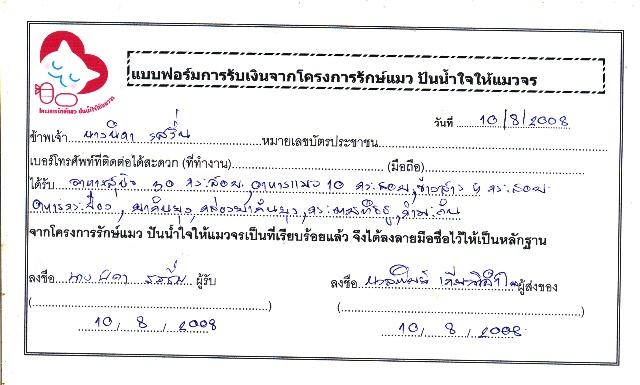 โครงการรักษ์แมว ปันน้ำใจให้แมวจร
แบบฟอร์มการรับเงินจากโครงการรักษ์แมว ปันน้ำใจให้แมวจร
วันที่ 10/8/2008
ข้าพเจ้า นางนิดา รสรื่น หมายเลขบัตรประชาชน
เบอร์โทรศัพท์ที่ติดต่อได้สะดวก (ที่ทำงาน) (มือถือ)
ได้รับ อาหารสุนัข 30 กระสอบ, อาหารแมว 10 กระสอบ, ข้าวสาร 4 กระสอบ
อาหารกระป๋อง, ยากันยุง, กระดาษทิชชู
จากโครงการรักษ์แมว ปันน้ำใจให้แมวจรเป็นที่เรียบร้อยแล้ว จึงได้ลงลายมือชื่อไว้ให้เป็นหลักฐาน
ลงชื่อ นางนิดา รสรื่น ผู้รับ ลงชื่อ ผู้ส่งของ
( ) ( )
10/ 8 / 2008 10/ 8 / 2008